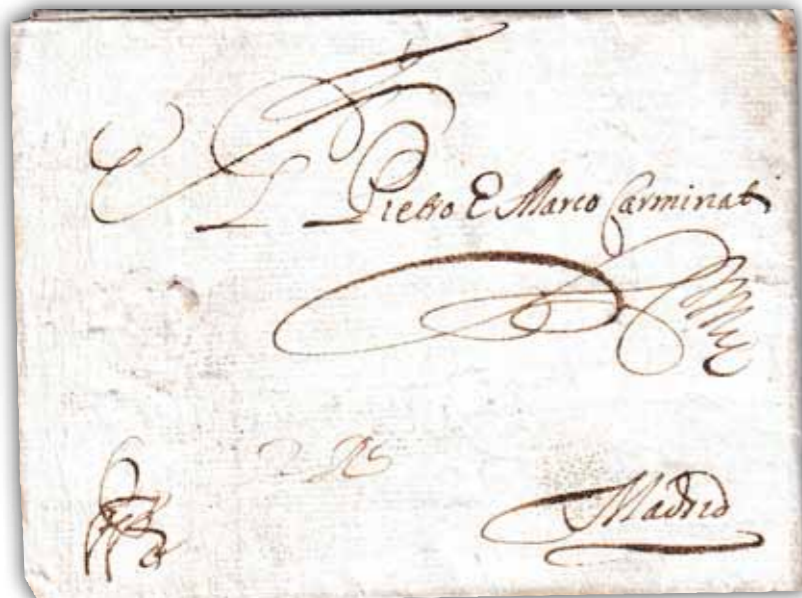 Pietro E Marco Carminati
Madrid